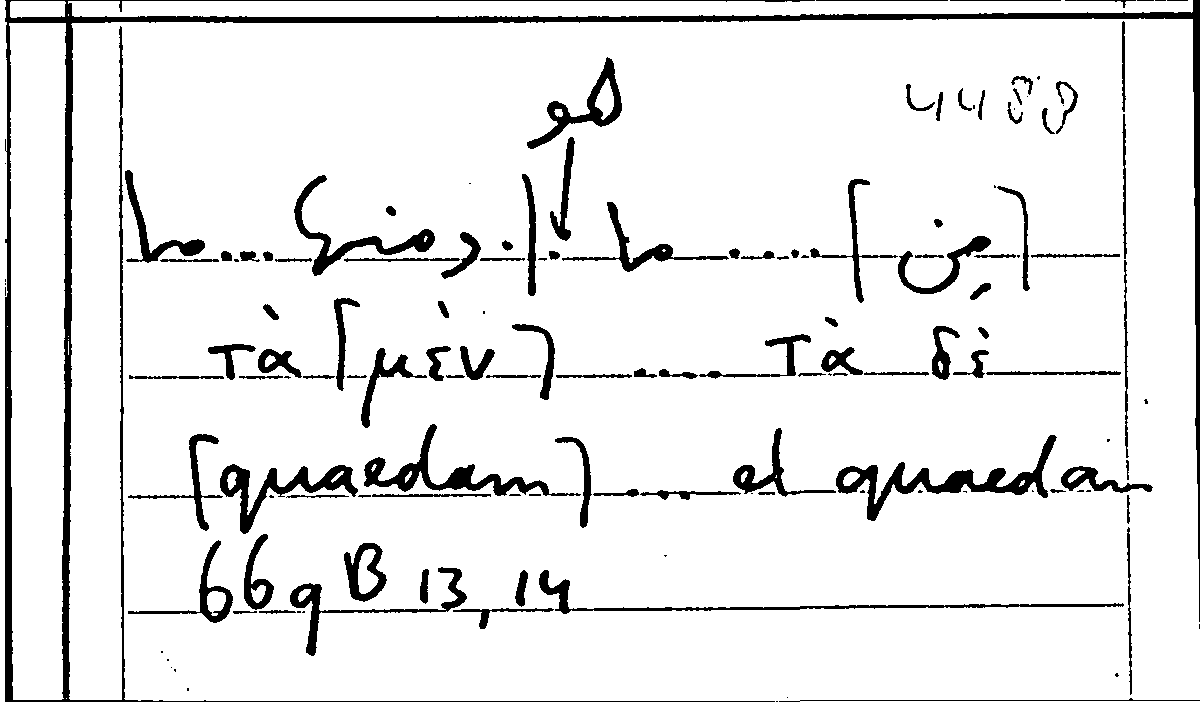 4488
هو
[من] .... ما
ما
τὰ [μὲν] ..... τὰ δὲ
[quaedam] ... et quaedam
669 B 13, 14